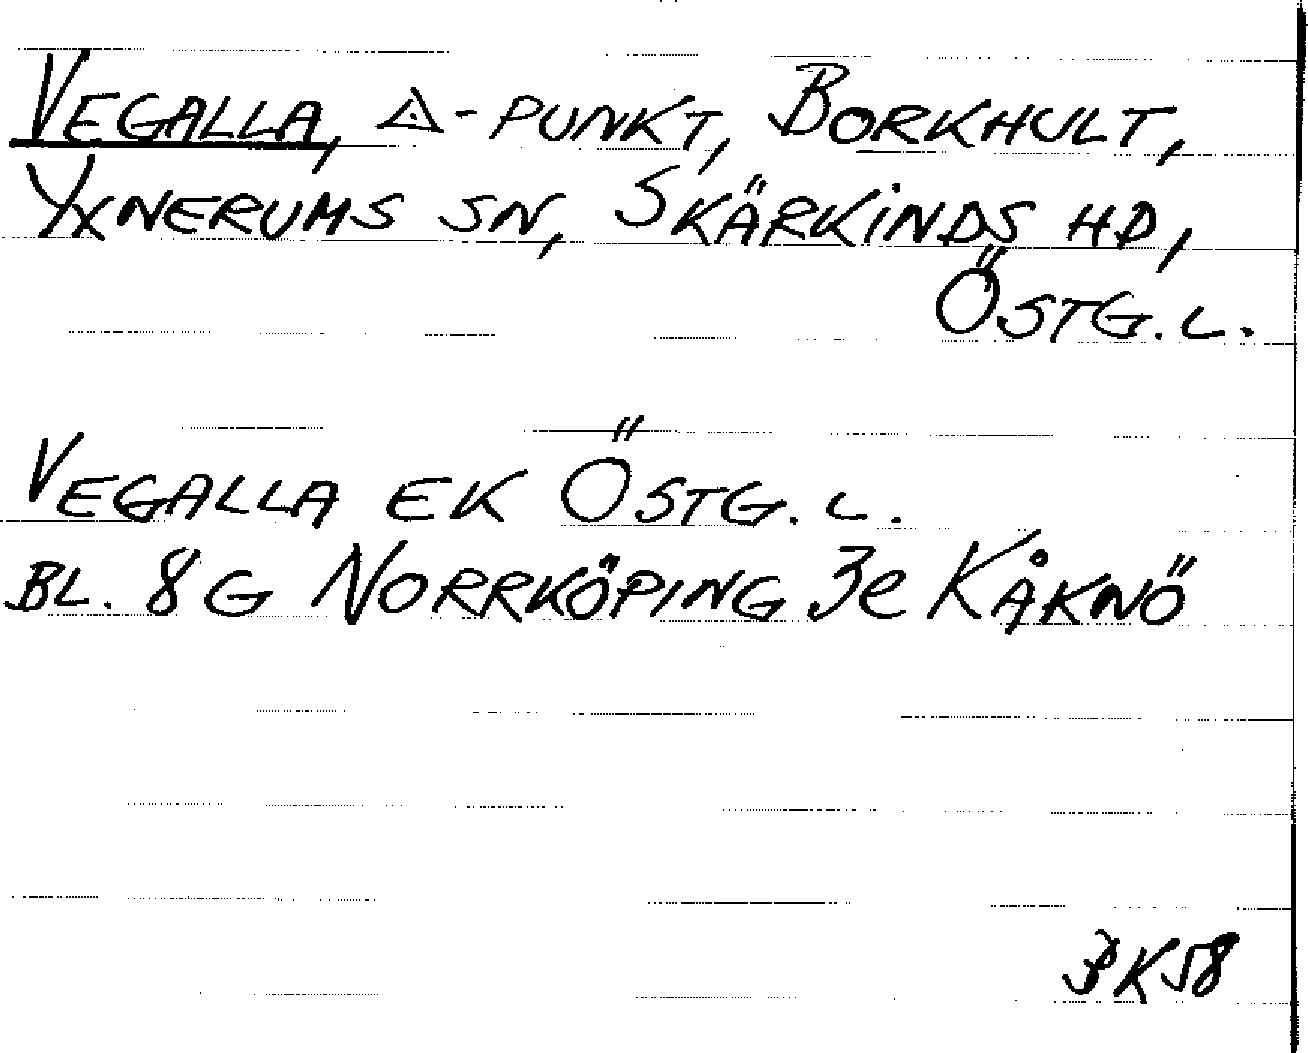 VEGALLA, △-PUNKT, BORKHULT,
YXNERUMS SN, SKÄRKINDS HD,
ÖSTG. L.
VEGALLA EK ÖSTG. L.
BL. 8G NORRKÖPING 3e KÅKNÖ